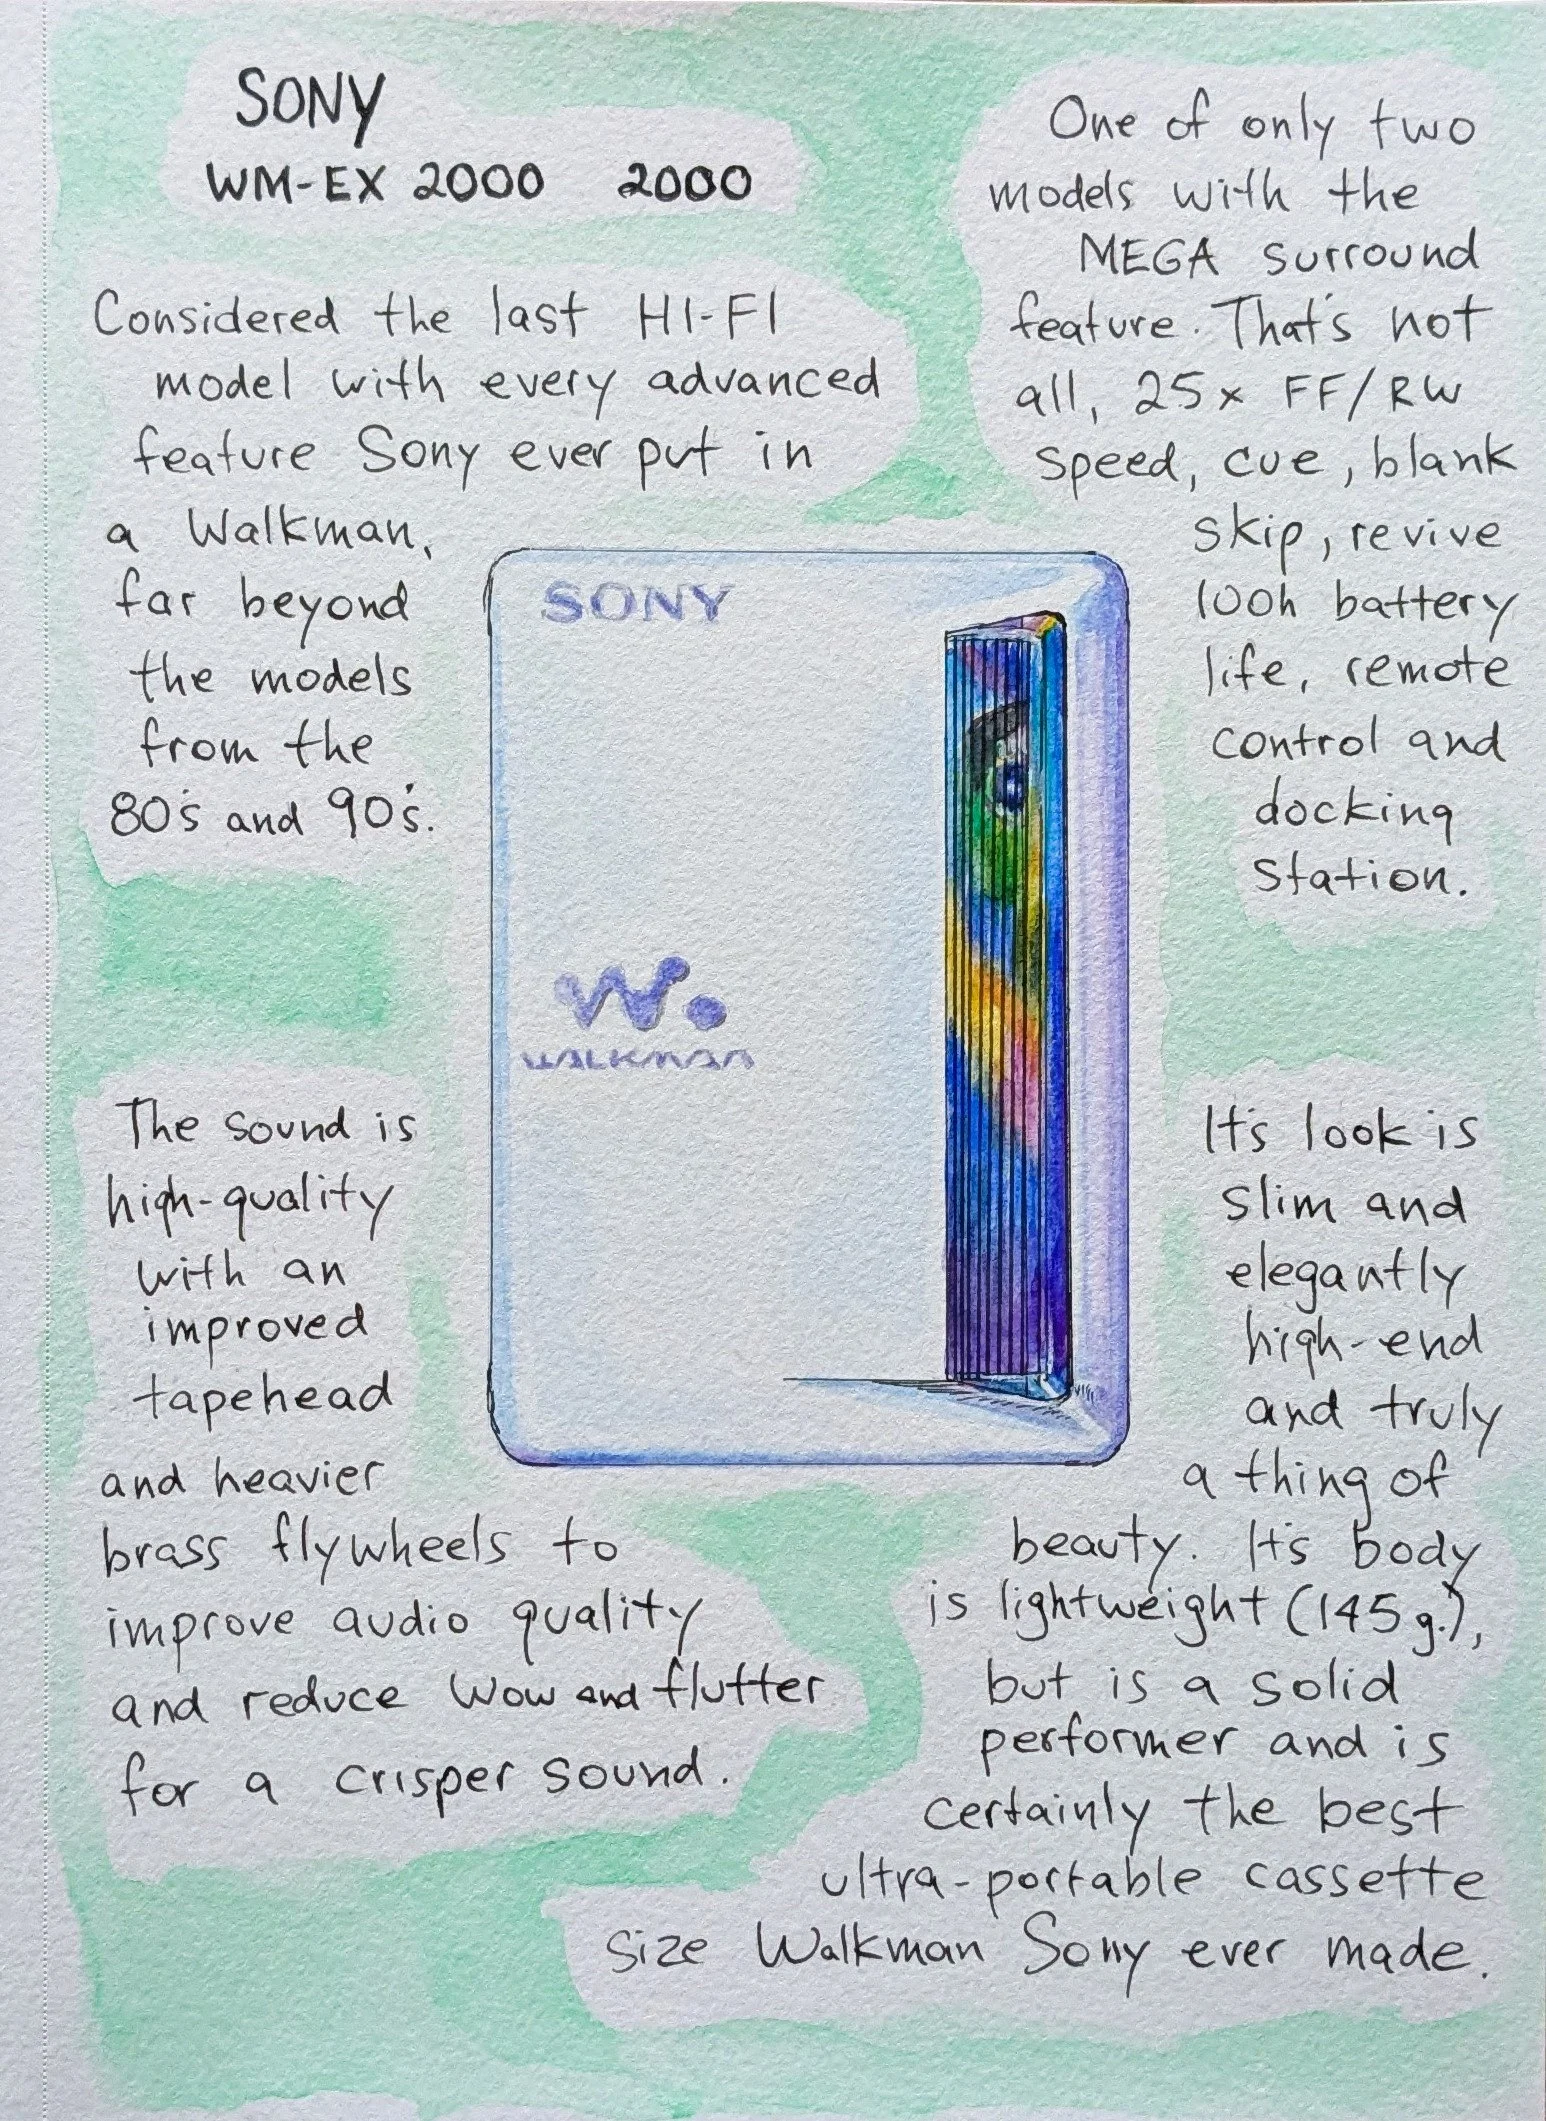 SONY
WM-EX 2000 2000
Considered the last HI-FI
model with every advanced
feature Sony ever put in
a Walkman,
far beyond
the models
from the
80's and 90's.
One of only two
models with the
MEGA surround
feature. That's not
all, 25x FF/RW
speed, cue, blank
skip, revive
100h battery
life, remote
control and
docking
station.
SONY
W.
WALKMAN
The sound is
high-quality
with an
improved
tapehead
and heavier
brass flywheels to
improve audio quality
and reduce wow and flutter
for a crisper sound.
It's look is
slim and
elegantly
high-end
and truly
a thing of
beauty. It's body
is lightweight (145g.),
but is a solid
performer and is
certainly the best
ultra-portable cassette
size Walkman Sony ever made.